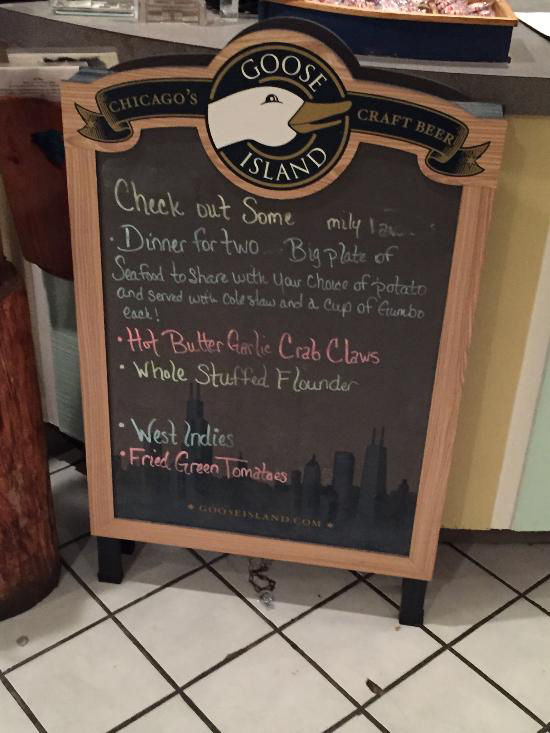 GOOSE
CHICAGO'S
CRAFT BEER
ISLAND
Check out Some mily
• Dinner for two Big plate of
Seafood to share with your choice of potato
and served with coleslaw and a cup of Gumbo
each!
• Hot Butter Garlic Crab Claws
• Whole Stuffed Flounder
• West Indies
• Fried Green Tomatoes
GOOSEISLAND.COM